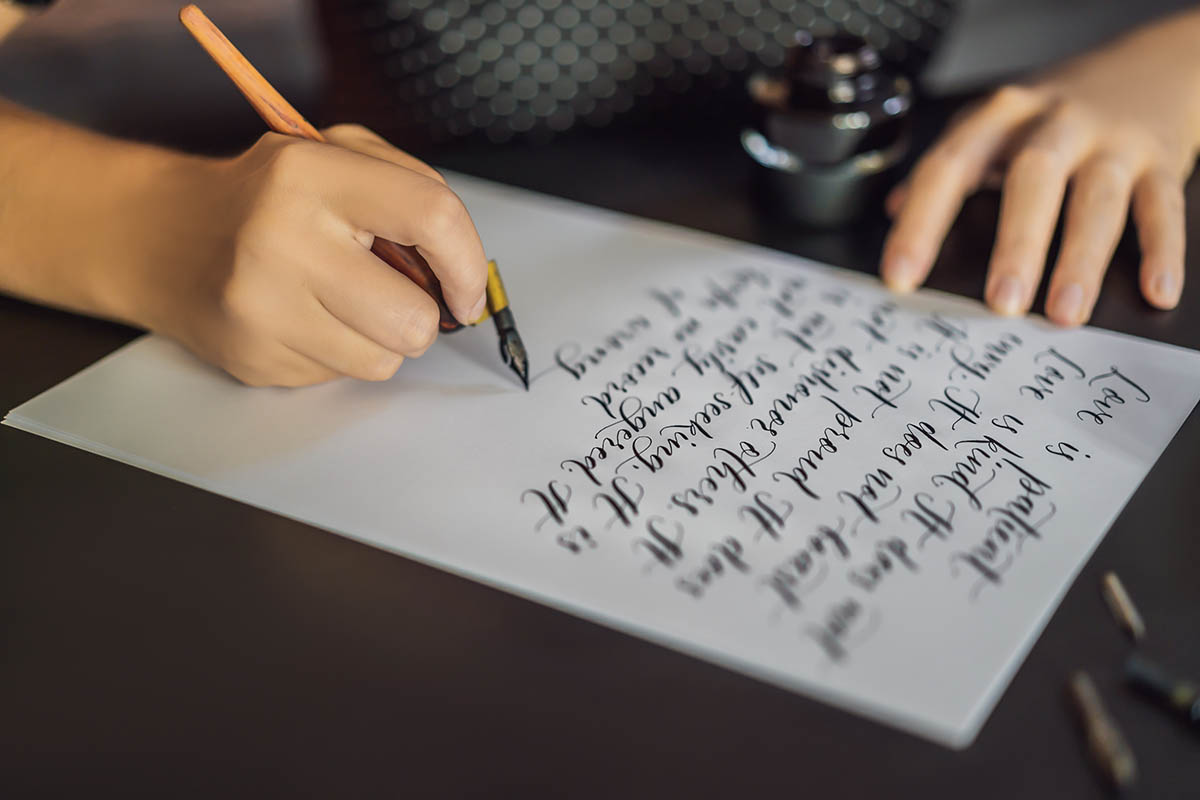 Love is patient
Love is kind. It does not
envy. It does not boast
It is not proud. It does
not dishonor others. It
is not self seeking. It is
not easily angered. It
keeps no record
of wrong